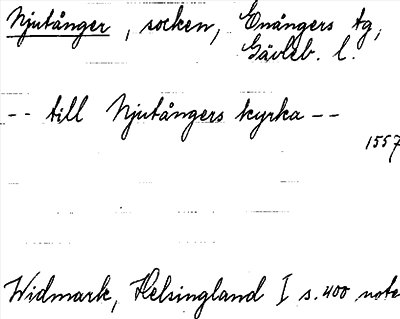 Njutånger, socken, Enångers tg,
Gävleb. l.
-- till Njutångers kyrka --
1557
Widmark, Helsingland I s. 400 note